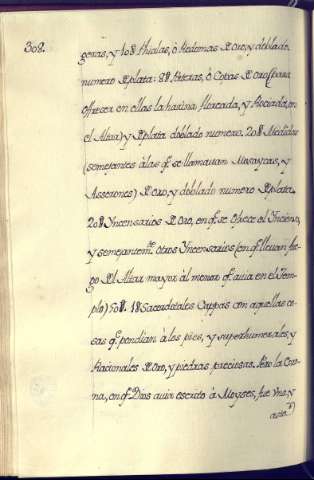 308.
geras, y 108 Phialas, ò Redomas de Oro, y doblado
numero de plata: 88 Pateras, ò Copas de Oro (para
offrecer en ellas la harina floreada, y Rociada, en
el Altar) y de plata doblado numero. 208 Medidas
(semejantes à las q̃ se llamauan Mosaycas, y
Asserones) de Oro, y doblado numero de plata.
208 Yncensarios de Oro, en q̃ se Ofrece el Yncienso,
y semejantem.te otros Yncensarios (en q̃ lleuan fue-
go del Altar mayor al menor q̃ auia en el Tem-
plo) 508. 18 Sacerdotales Cappas con aquellas co-
sas q̃ pendian à los pies, y superhumerales, y
Racionales de Oro, y piedras preciosas. Pero la Coro-
na, en q̃ Dios auia escrito à Moyses, fue Vna, y